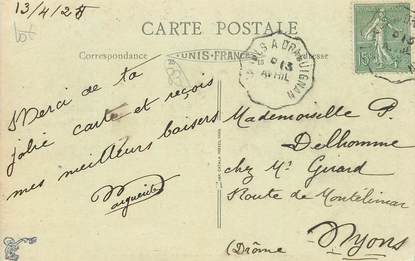 13/4/25
CARTE POSTALE
Correspondance
TUNIS-FRANCE
Adresse
A DRAGUIGNAN
13
AVRIL
15
Merci de ta
jolie carte et reçois
mes meilleurs baisers
Marguerite
Mademoiselle P.
Delhomme
chez Mr Girard
Route de Montélimar
Nyons
(Drôme)